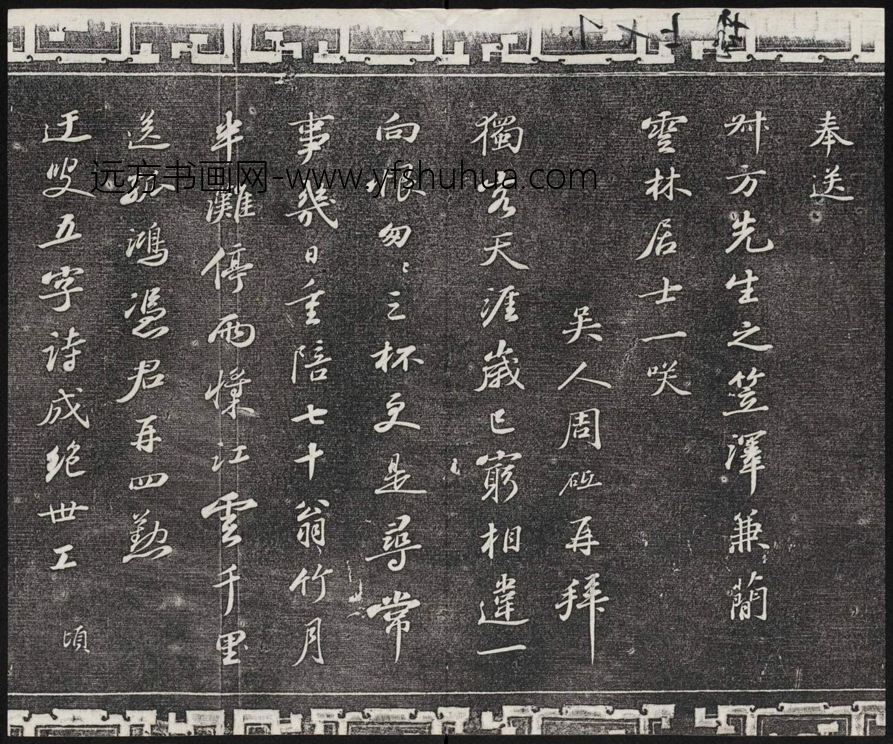 奉送
叔方先生之笠澤兼蕳
雲林居士一咲
吴人周砥再拜
獨客天涯歲已窮相違一
向恨匆〻三杯更是尋常
事幾日重陪七十翁竹月
半灘停雨懷江雲千里
送孤鴻憑君再四懃
迂叟五字詩成絶世工
頃
远方书画网-www.yfshuhua.com